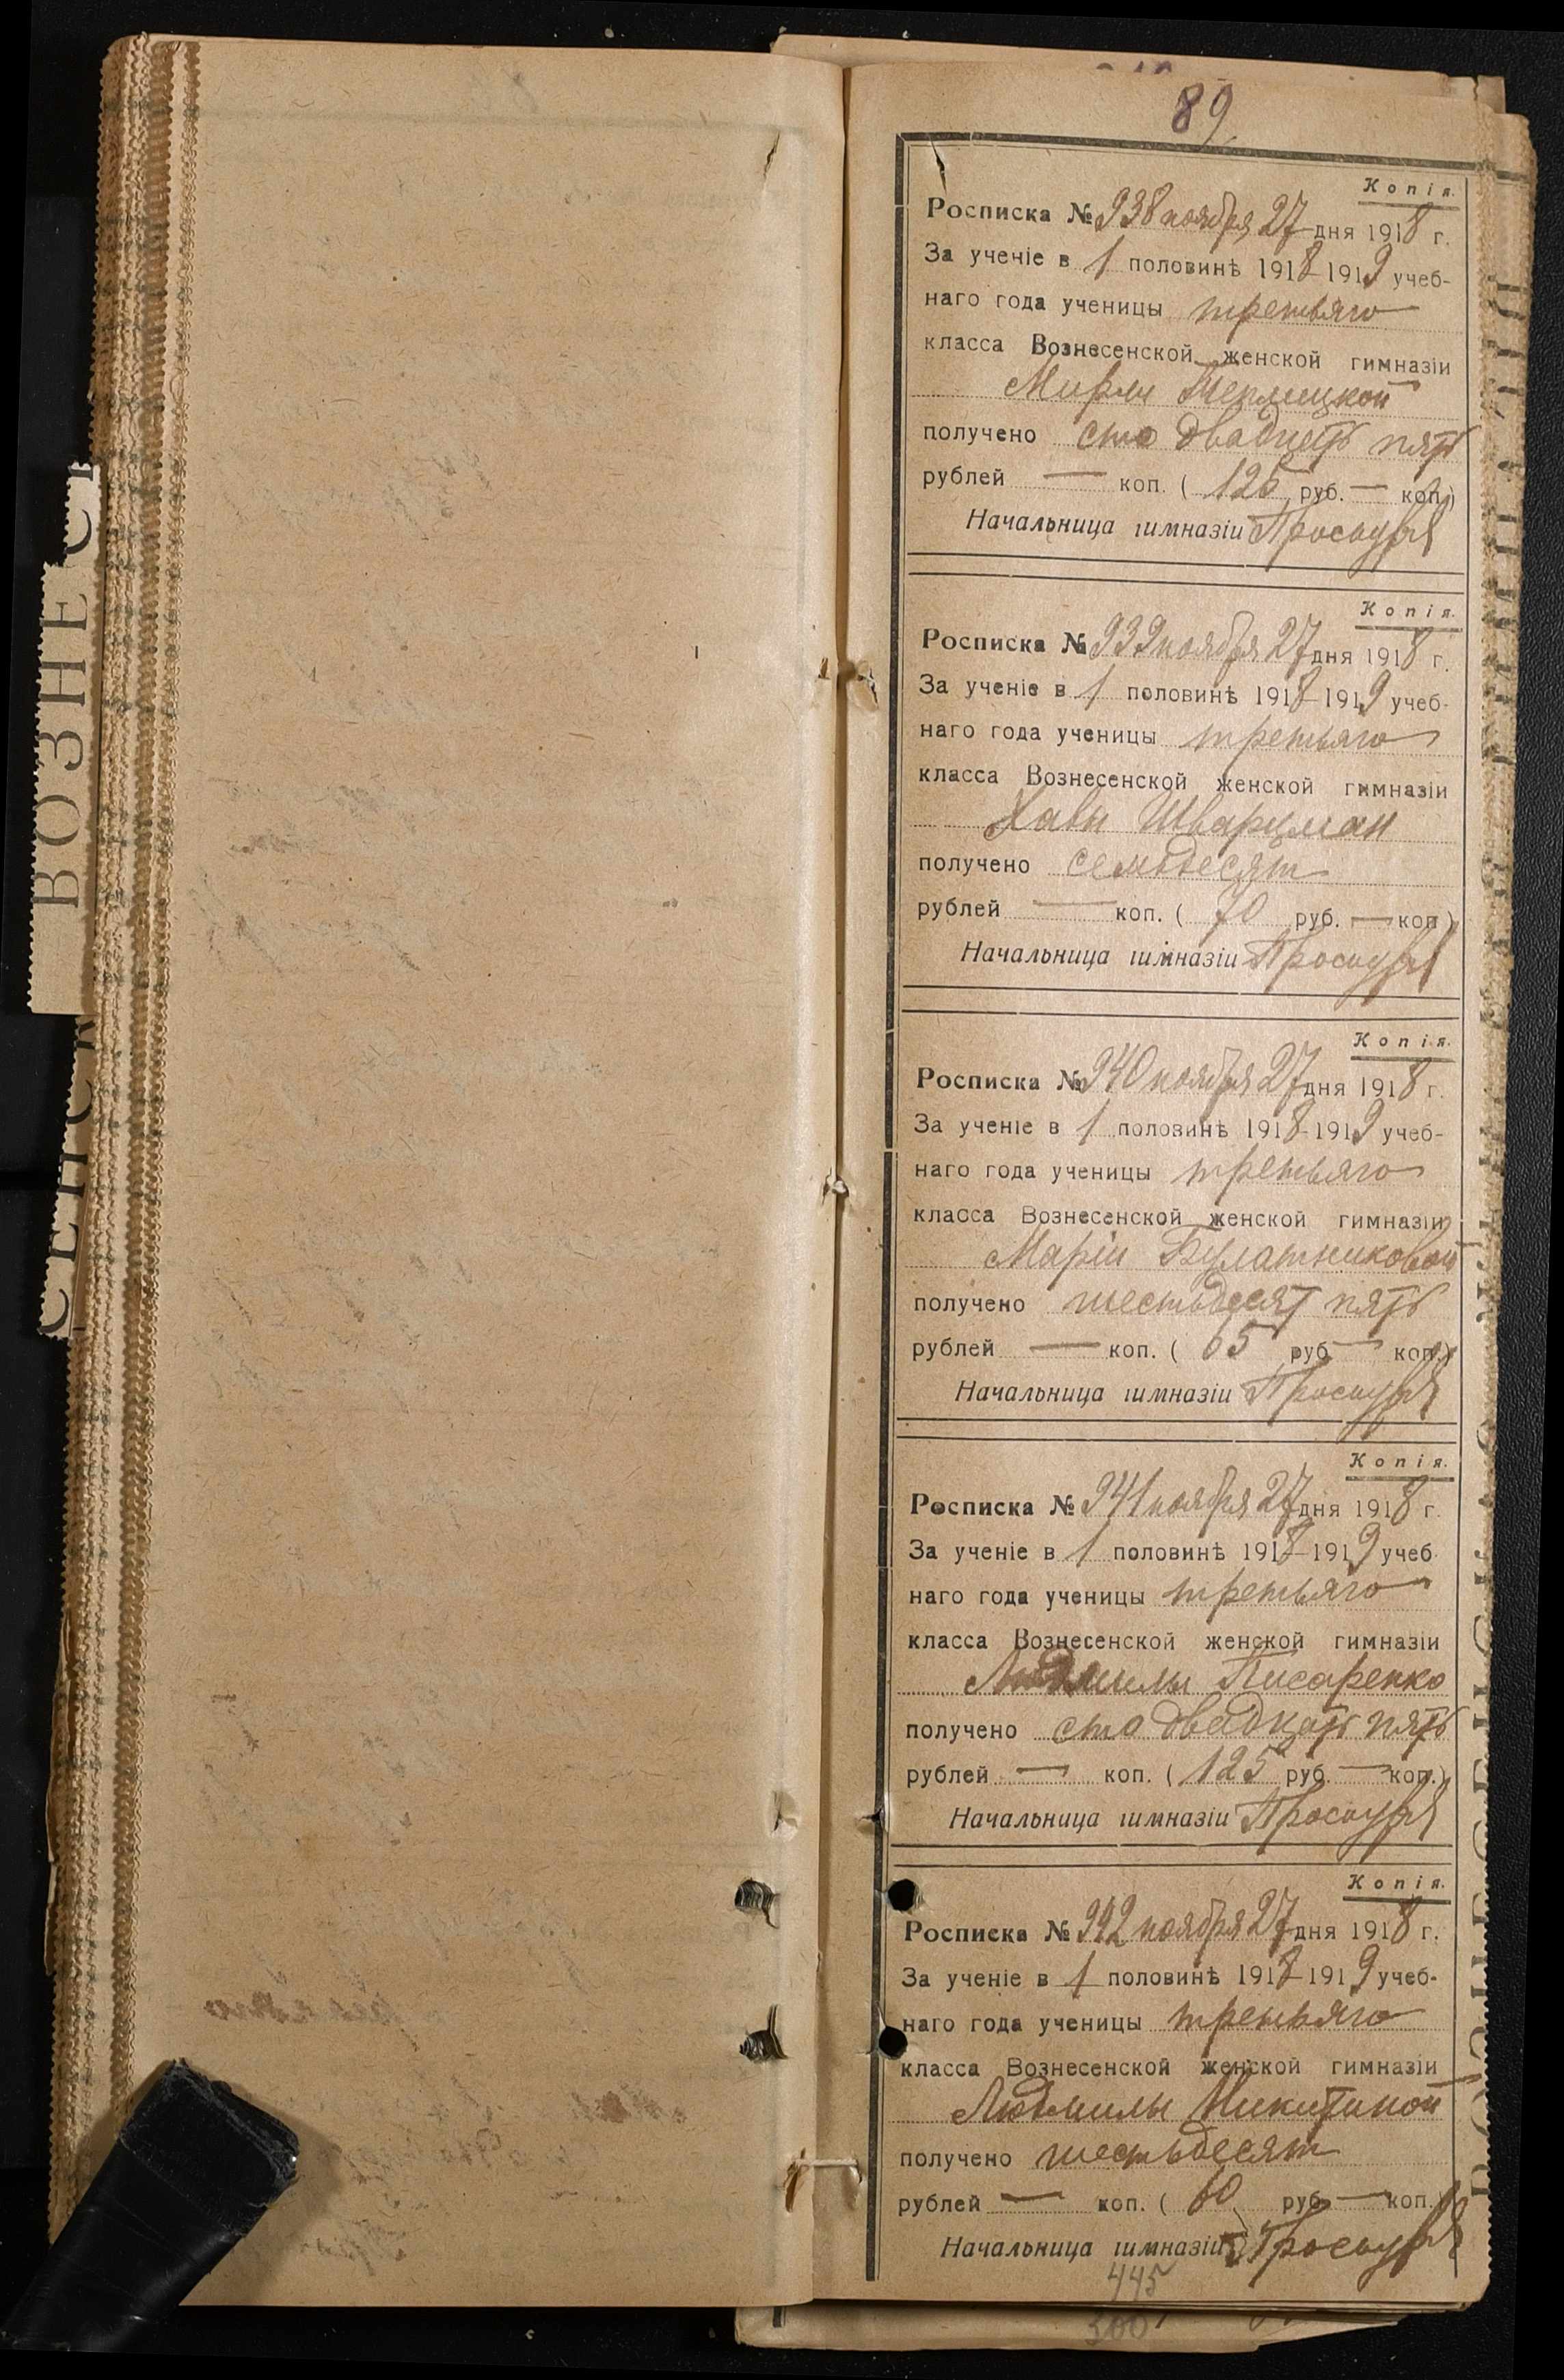 89
Копія.
Росписка № 938 ноября 27 дня 1918 г.
За ученіе в 1 половинѣ 1918-1919 учеб-
наго года ученицы третьяго
класса Вознесенской женской гимназіи
Мирли
получено сто двадцать пять
рублей — коп. ( 125 руб. — коп.)
Начальница гимназіи
Копія.
Росписка № 939 ноября 27 дня 1918 г.
За ученіе в 1 половинѣ 1918-1919 учеб-
наго года ученицы третьяго
класса Вознесенской женской гимназіи
Хавы Шварцман
получено семьдесят
рублей — коп. ( 70 руб. — коп.)
Начальница гимназіи
Копія.
Росписка № 940 ноября 27 дня 1918 г.
За ученіе в 1 половинѣ 1918-1919 учеб-
наго года ученицы третьяго
класса Вознесенской женской гимназіи
Маріи Булатниковой
получено шестьдесят пять
рублей — коп. ( 65 руб. — коп.)
Начальница гимназіи
Копія.
Росписка № 941 ноября 27 дня 1918 г.
За ученіе в 1 половинѣ 1918-1919 учеб
наго года ученицы третьяго
класса Вознесенской женской гимназіи
Людмилы Писаренко
получено сто двадцать пять
рублей — коп. ( 125 руб. — коп.)
Начальница гимназіи
Копія.
Росписка № 942 ноября 27 дня 1918 г.
За ученіе в 1 половинѣ 1918-1919 учеб-
наго года ученицы третьяго
класса Вознесенской женской гимназіи
Людмилы Никитиной
получено шестьдесят
рублей — коп. ( 60 руб. — коп.)
Начальница гимназіи
445
300
ВОЗНЕС